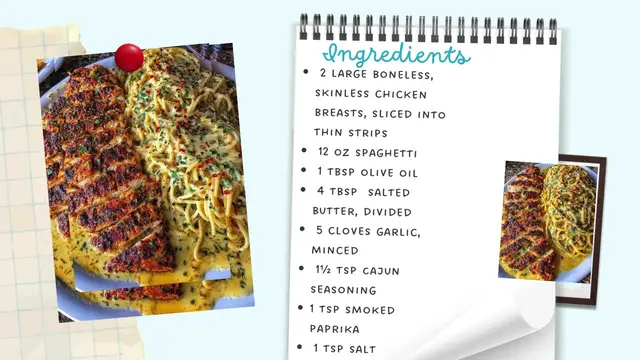 Ingredients
• 2 LARGE BONELESS,
SKINLESS CHICKEN
BREASTS, SLICED INTO
THIN STRIPS
• 12 OZ SPAGHETTI
• 1 TBSP OLIVE OIL
• 4 TBSP SALTED
BUTTER, DIVIDED
• 5 CLOVES GARLIC,
MINCED
• 1½ TSP CAJUN
SEASONING
• 1 TSP SMOKED
PAPRIKA
• 1 TSP SALT